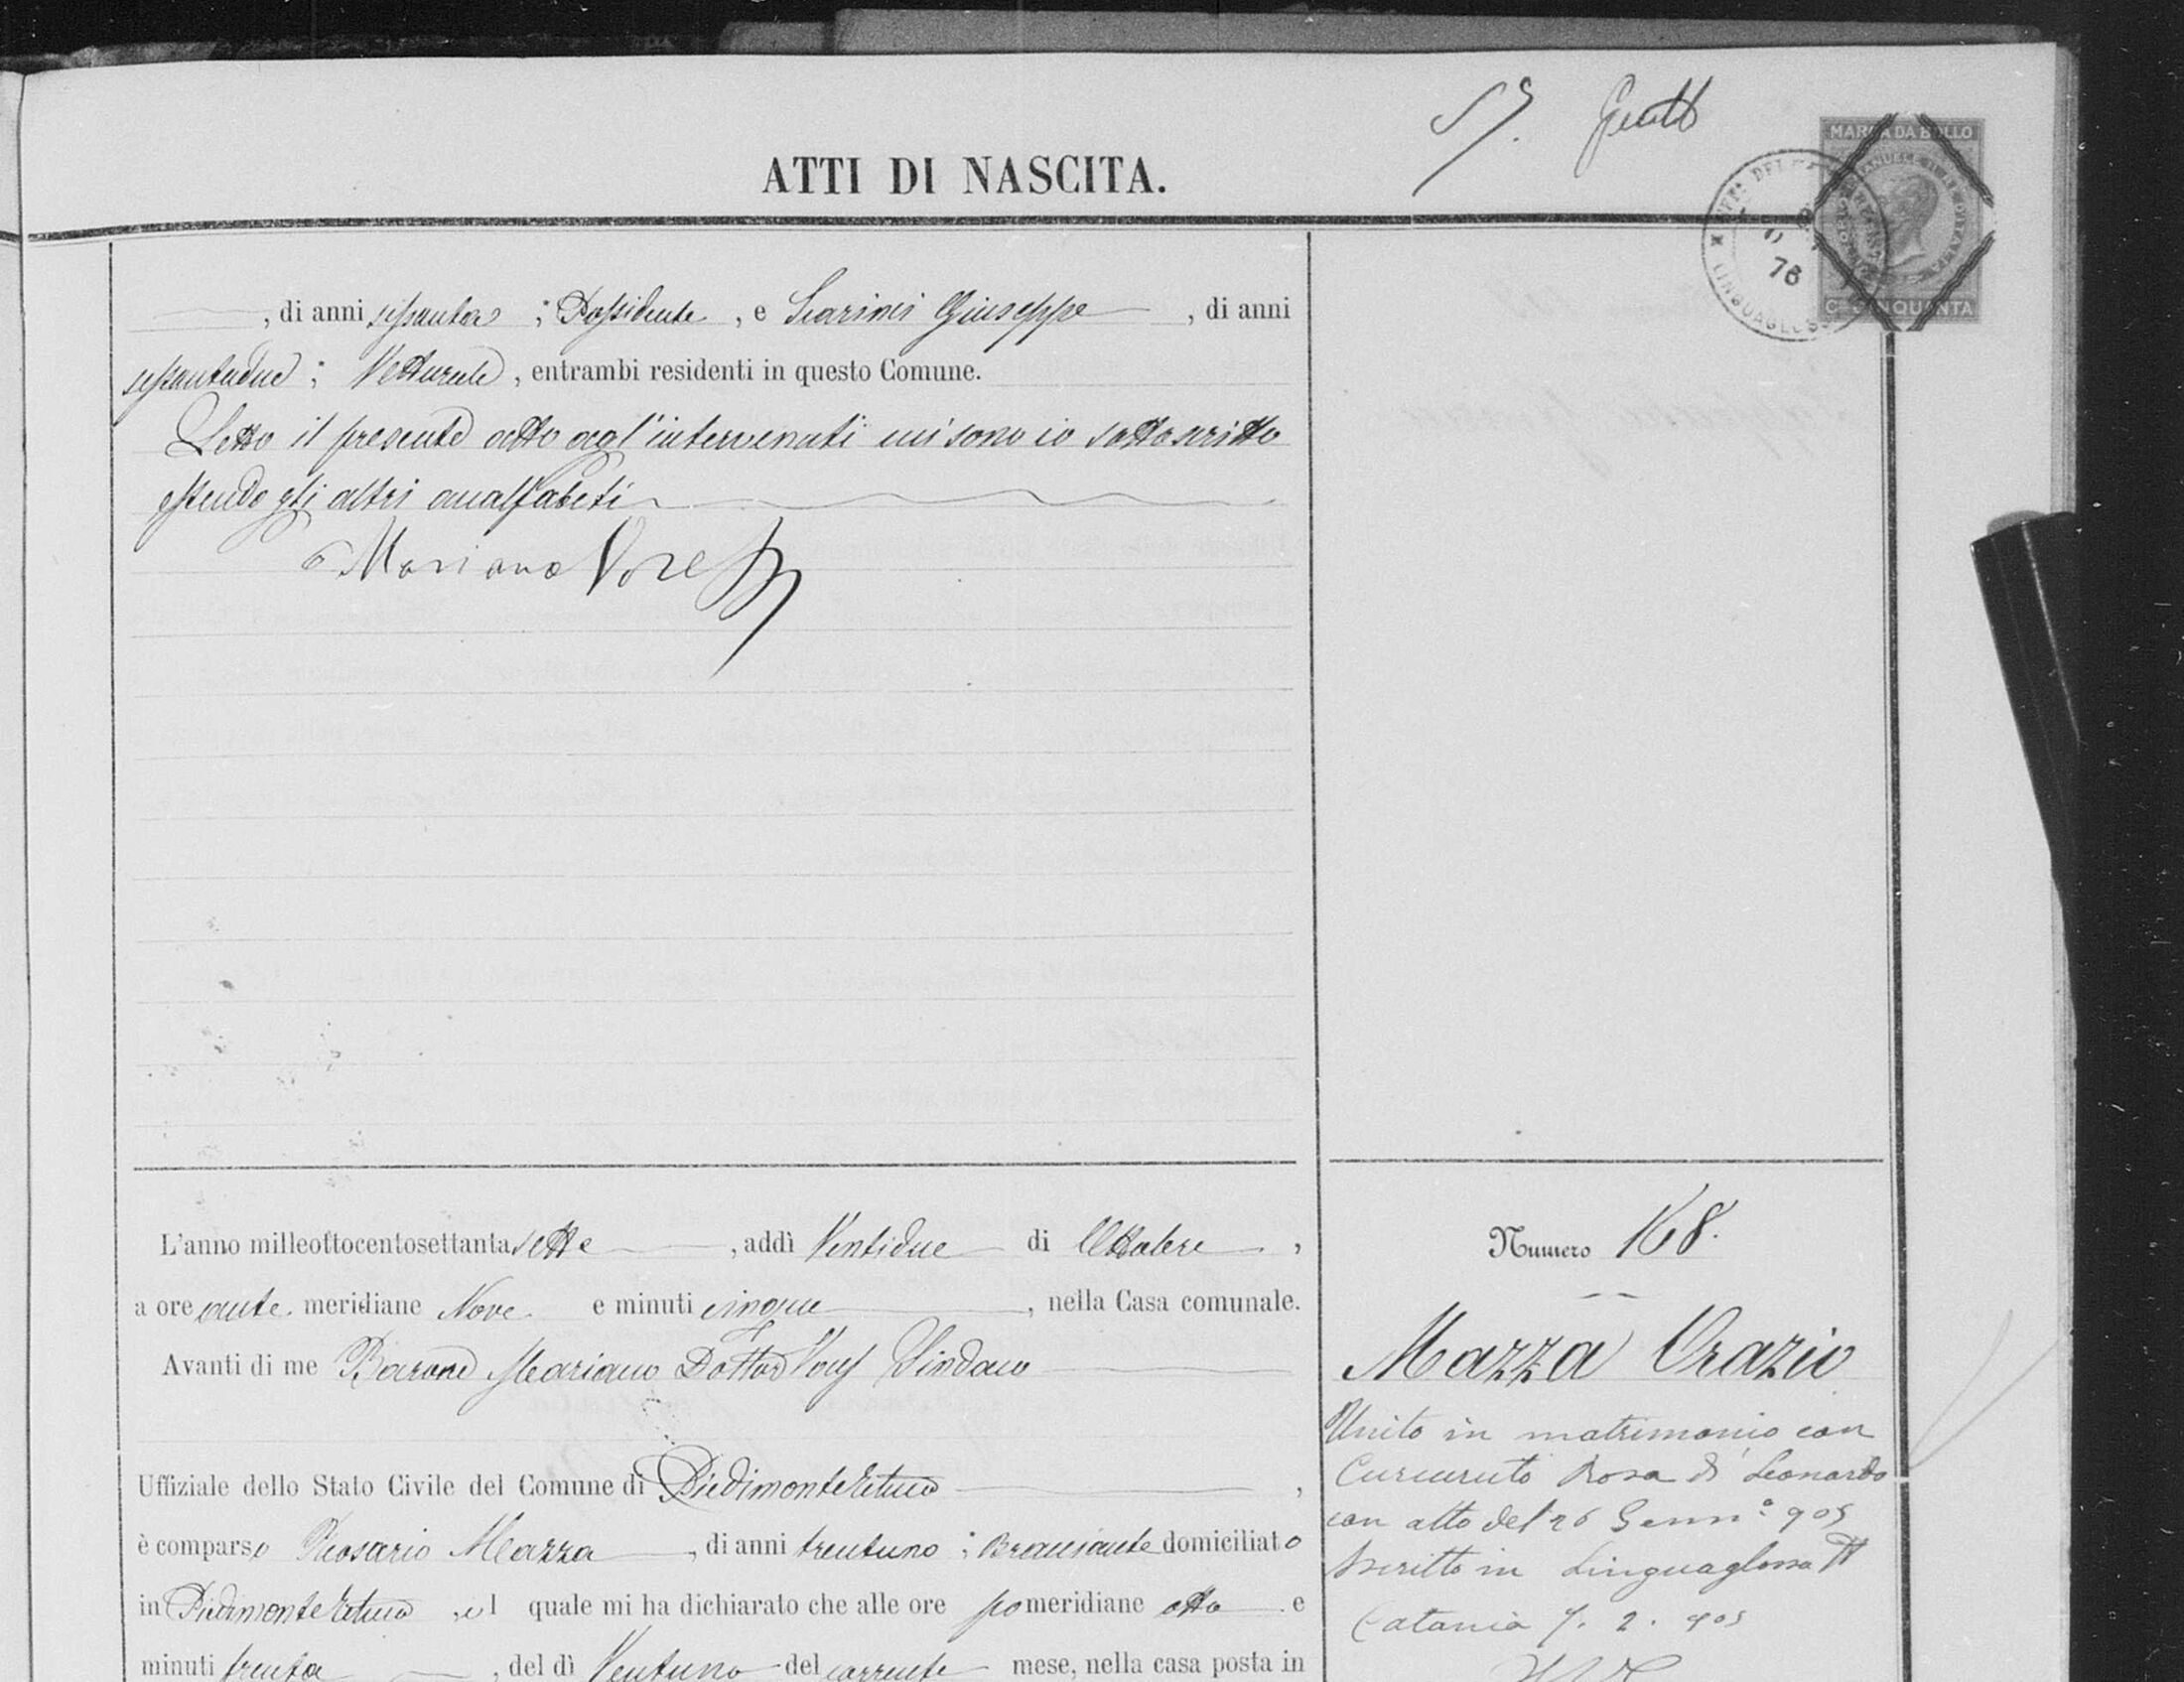 ATTI DI NASCITA.
MARCA DA BOLLO
CINQUANTA
LINGUAGLOSSA
76
, di anni sessanta ; Possidente , e Giuseppe , di anni
sessantadue ; Vetturale , entrambi residenti in questo Comune.
Letto il presente atto agl'intervenuti mi sono io sottoscritto
essendo gli altri analfabeti
Mariano Voces
L'anno milleottocentosettantasette , addì Ventidue di Ottobre ,
a ore ante meridiane Nove e minuti cinque , nella Casa comunale.
Avanti di me Barone Mariano Dottor Voces Sindaco
Uffiziale dello Stato Civile del Comune di Piedimonte Etneo ,
è comparso Rosario Mazza , di anni trentuno ; Bracciante domiciliato
in Piedimonte Etneo , il quale mi ha dichiarato che alle ore pomeridiane otto e
minuti trenta , del dì Ventuno del corrente mese, nella casa posta in
Numero 168.
Mazza Orazio
Unito in matrimonio con
Curcuruto Rosa di Leonardo
con atto del 26 Genn° 905
Iscritto in Linguaglossa
Catania 7. 2. 905